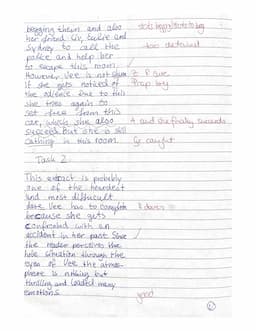 begging them and also
her friend Liv, Luke and
Sydney to call the
police and help her
to escape this room.
However Vee is not sure
if she gets noticed of
the audience. Due to this
she tries again to
set free from this
car, which she also
succeeds but she is still
in this room.
Task 2
This extract is probably
one of the heardest
and most difficult
dare Vee has to complete
because she gets
confronted with an
accident in her past. Sine
the reader perceives the
hole situation through the
eyes of Vee the atmos-
phere is nothing but
thrilling and loaded many
emotions.
too detailed
Z R sure
Prep by
A and she finally succeeds
Gr caught
R dares
good